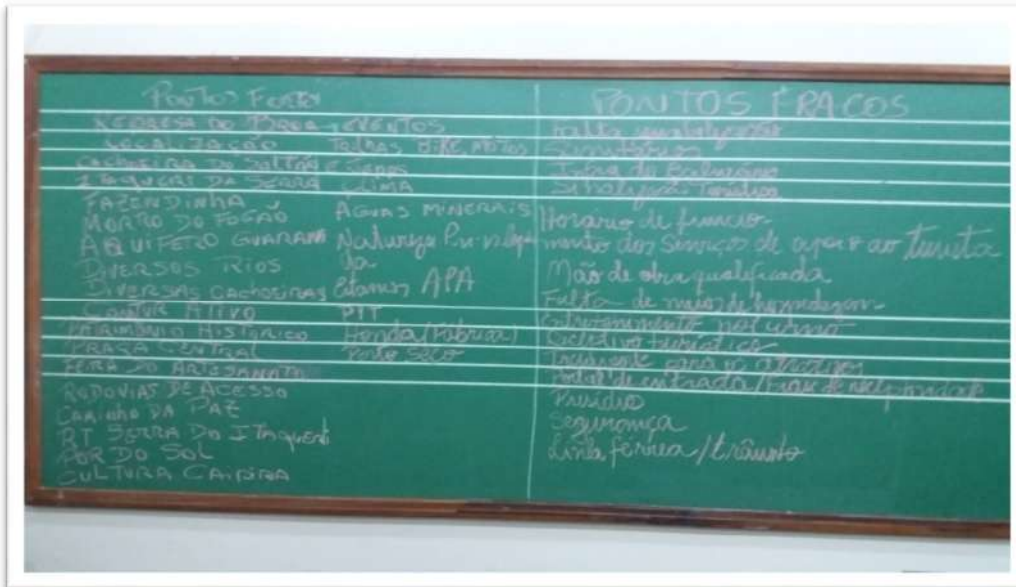 Pontos Fortes
REPRESA DO BROA
LOCALIZAÇÃO
CACHOEIRA DO SALTÃO E
ITAQUERI DA SERRA
FAZENDINHA
MORRO DO FOGÃO
AQUIFERO GUARANI
DIVERSOS RIOS
DIVERSAS CACHOEIRAS
COMTUR ATIVO
PATRIMÔNIO HISTÓRICO
PRAÇA CENTRAL
FEIRA DO ARTESANATO
RODOVIAS DE ACESSO
CAMINHO DA PAZ
RT SERRA DO ITAQUERI
POR DO SOL
CULTURA CAIPIRA
EVENTOS
TRILHAS BIKE, MOTOS
CLIMA
AGUAS MINERAIS
Natureza Privilegia
da
Estamos APA
PIT
Honda (Fabrica)
Porto Seco
PONTOS FRACOS
Falta
Sanitários
do Balneário
Sinalização Turística
Horario de funcio-
namento dos Serviços de apoio ao turista
Mão de obra qualificada
Falta de meios de hospedagem
Entretenimento noturno
turístico
para os atrativos
Portal de entrada /
Presídio
Segurança
Linha férrea / trânsito